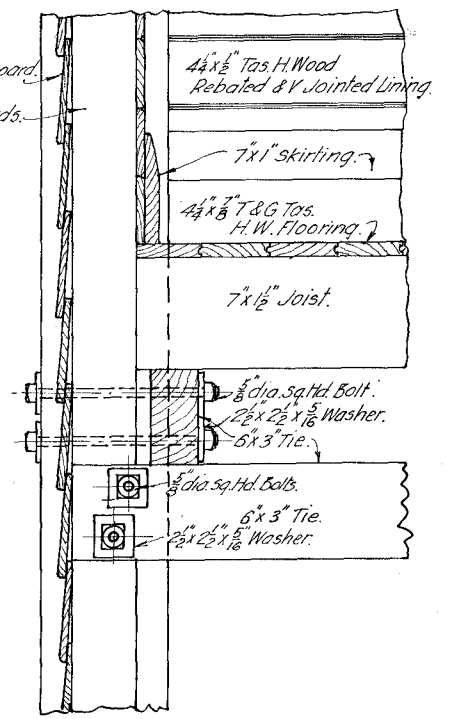 oard.
ds.
4¼"x½" Tas. H. Wood
Rebated & V Jointed Lining.
7"x1" Skirting.
4¼"x⅞" T & G Tas.
H.W. Flooring.
7"x1½" Joist.
⅝" dia. Sq. Hd. Bolt.
2½"x2½"x5/16" Washer.
6"x3" Tie.
⅝" dia. Sq. Hd. Bolts.
6"x3" Tie.
2½"x2½"x5/16" Washer.